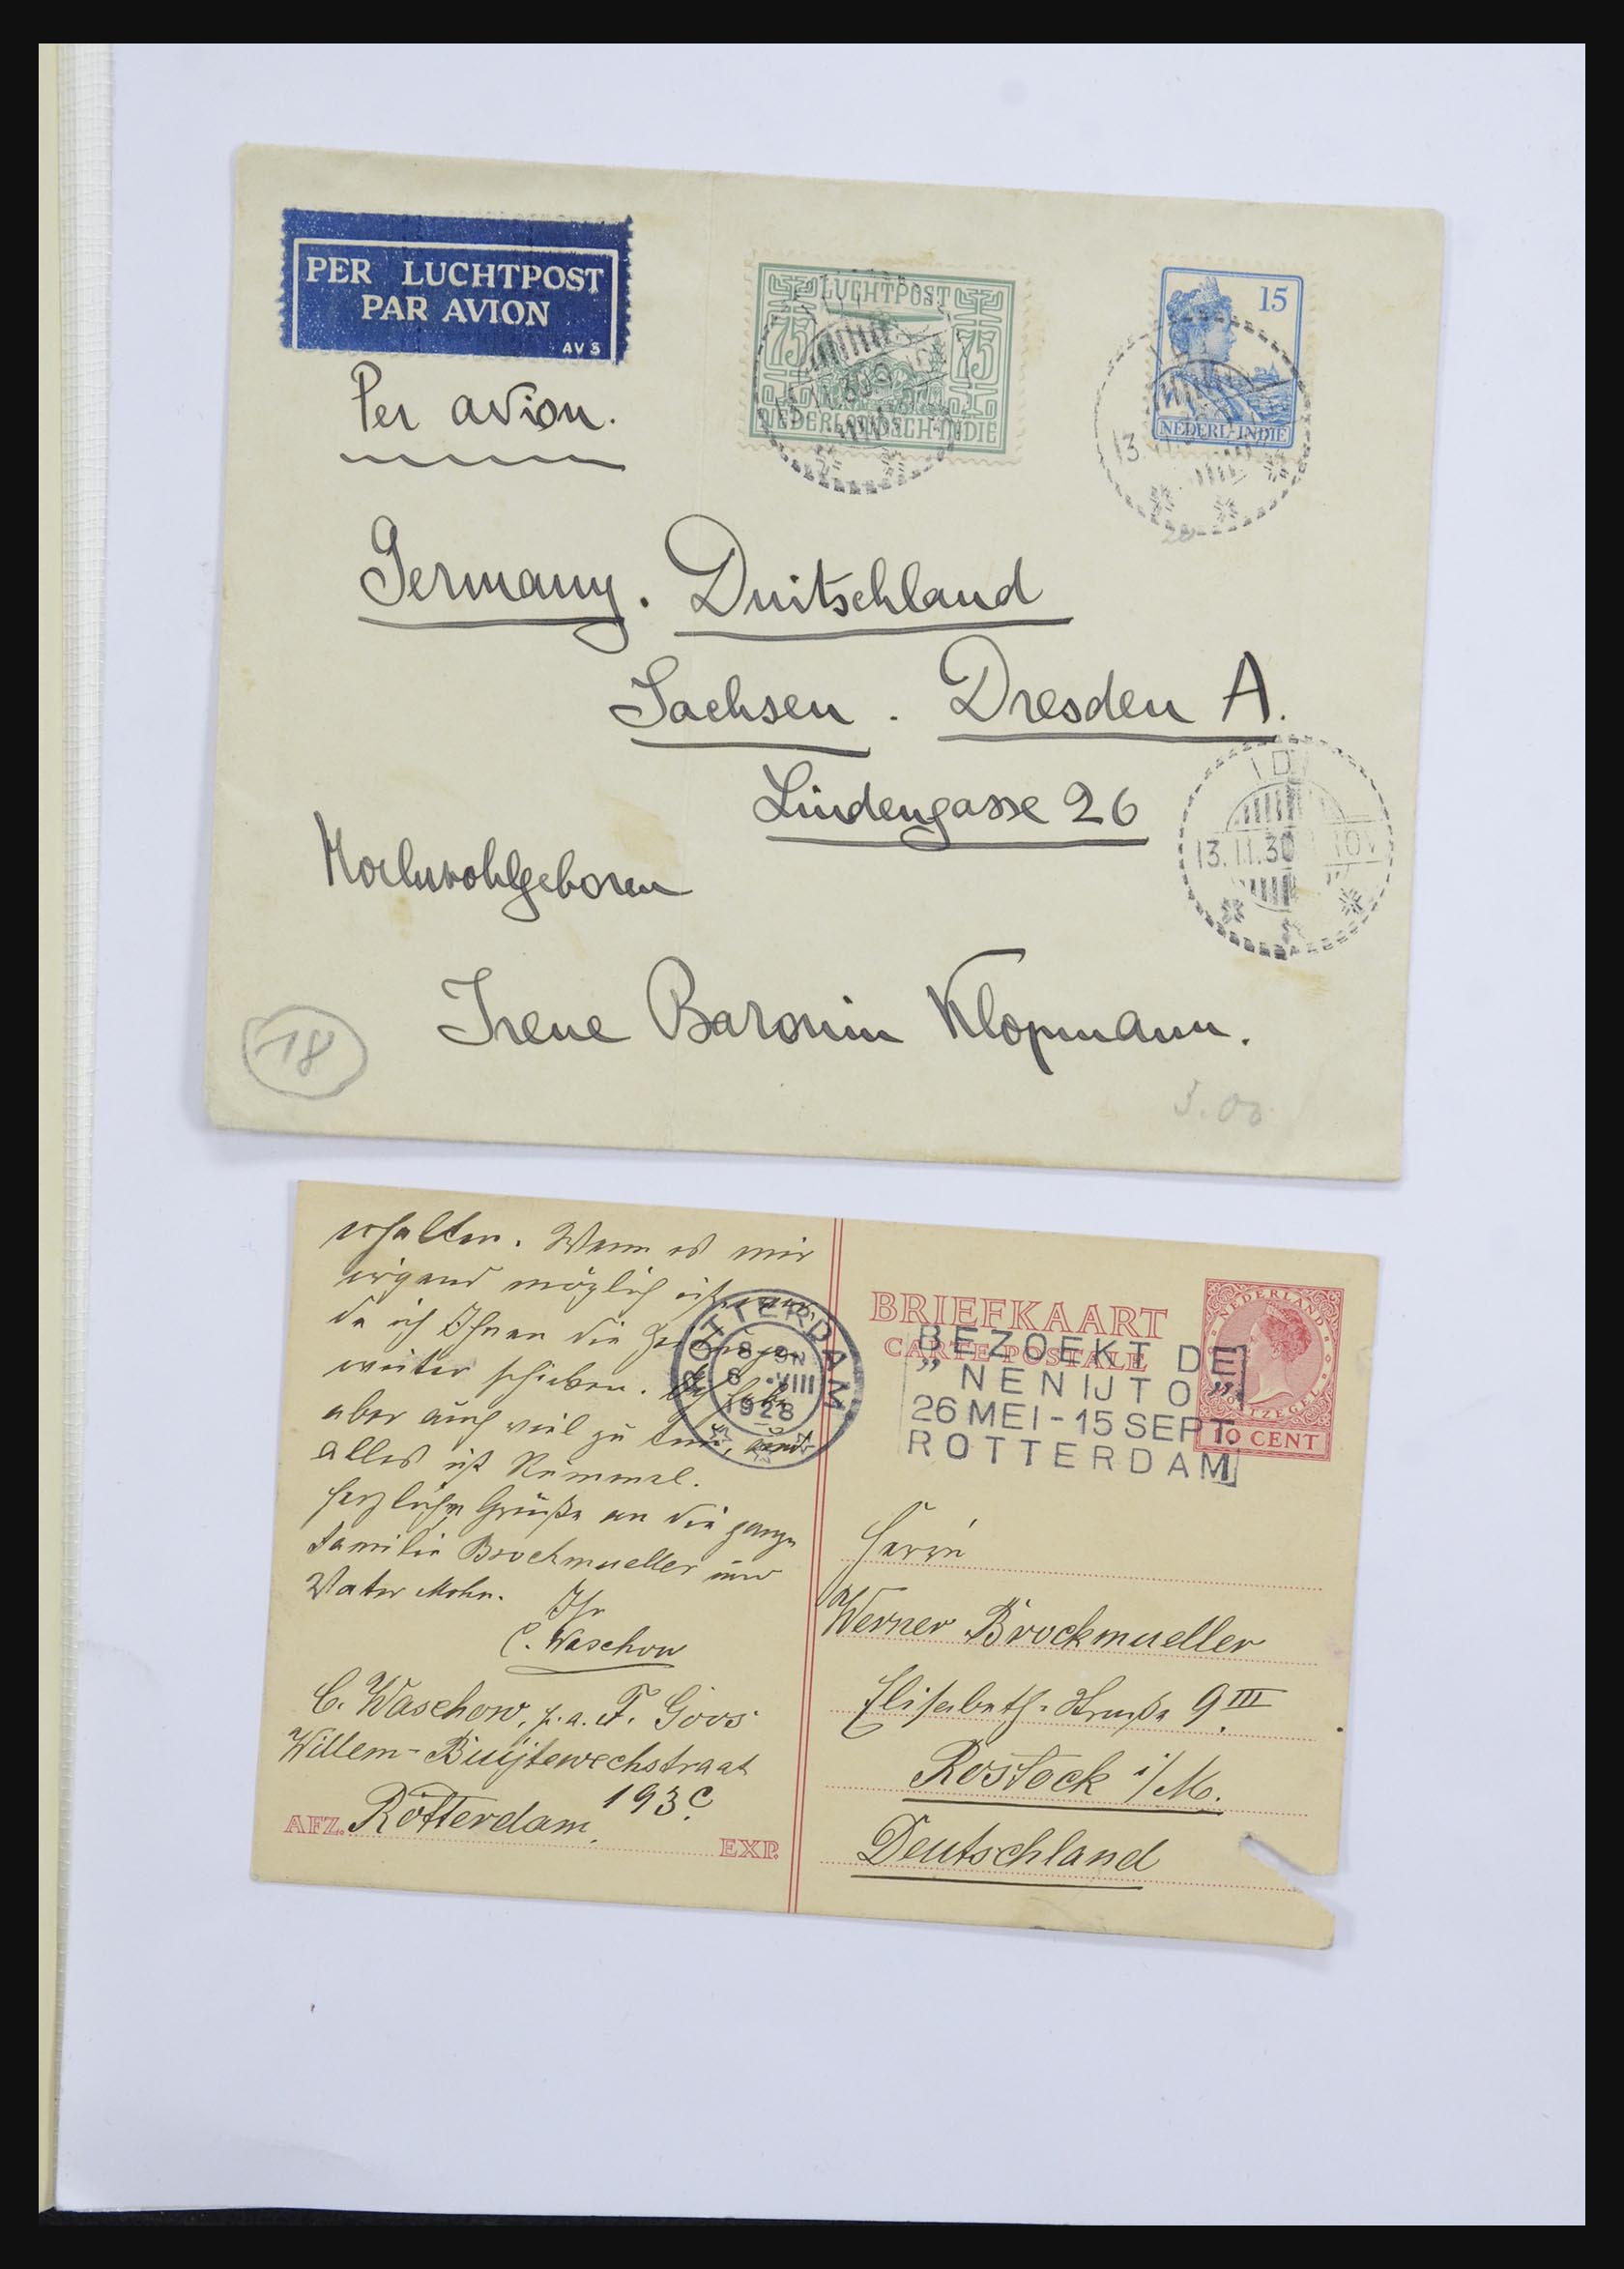 PER LUCHTPOST
PAR AVION
AV 5
Per avion.
LUCHTPOST
75 75
NEDERLANDSCH-INDIE
15
NEDERL-INDIE
13
Germany. Duitschland
Sachsen. Dresden A.
Lindengasse 26
13.11.30 10V
Hochwohlgeboren
Irene Baronin Klopmann.
18
erhalten. Wenn es mir
irgend möglich ist,
da ich Ihnen die
weiter schieben. Ich habe
aber auch viel zu tun, und
alles ist Rummel.
Herzliche Grüße an die ganze
Familie Brockmueller und
Vater Mohn.
Ihr
C. Waschow
C. Waschow, p. a. F. Goos
Willem-Buijtewechstraat
193 C.
AFZ. Rotterdam. EXP.
ROTTERDAM
8-9N
6 VIII
1928
BRIEFKAART
CARTE POSTALE
BEZOEKT DE
"NENIJTO"
26 MEI-15 SEPT.
ROTTERDAM
NEDERLAND
POSTZEGEL
10 CENT
Herrn
Werner Brockmueller
Elisabeth-Straße 9 III
Rostock i/M.
Deutschland